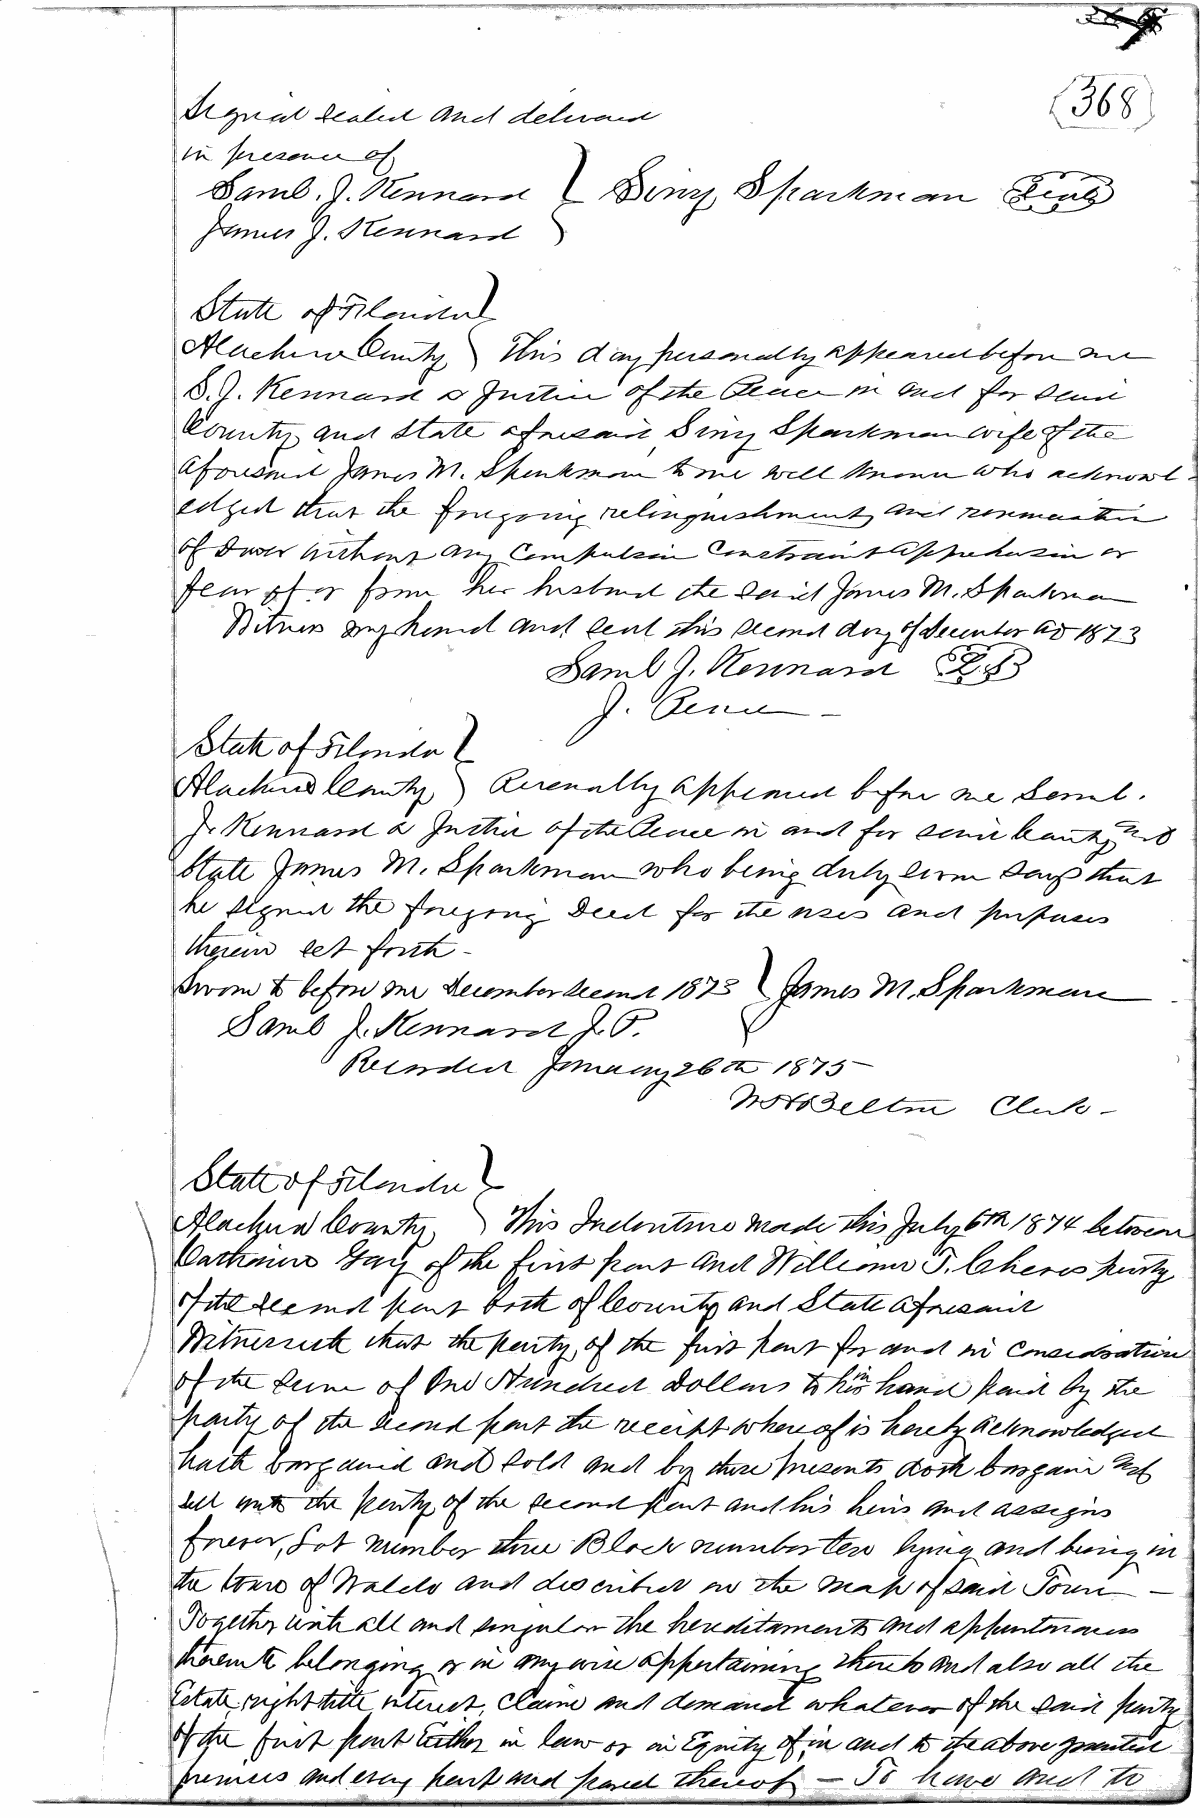 368
Signed sealed and delivered
in presence of
Saml. J. Kennard } Siny Sparkman Seal
James J. Kennard
State of Florida }
Alachua County } This day personally appeared before me
S. J. Kennard a Justice of the Peace in and for said
County and State aforesaid Siny Sparkman wife of the
aforesaid James M. Sparkman to me well known who acknowl-
edged that the foregoing relinquishment and renunciation
of Dower without any Compulsion Constraint apprehension or
fear of or from her husband the said James M. Sparkman
Witness my hand and seal this second day of December AD 1873
Saml J. Kennard L.S.
J. Peace
State of Florida }
Alachua County } Personally appeared before me Saml.
J. Kennard a Justice of the Peace in and for said County and
State James M. Sparkman who being duly sworn says that
he signed the foregoing Deed for the uses and purposes
therein set forth -
Sworn to before me December second 1873 } James M. Sparkman
Saml J. Kennard J. P.
Recorded January 26th 1875
Belton Clerk -
State of Florida }
Alachua County } This Indenture made this July 6th 1874 between
Catherine Gay of the first part and William T. Cheves party
of the second part both of County and State aforesaid
Witnesseth that the party of the first part for and in consideration
of the sum of One Hundred Dollars to him in hand paid by the
party of the second part the receipt whereof is hereby acknowledged
hath bargained and sold and by these presents doth bargain and
sell unto the party of the second part and his heirs and assigns
forever, Lot number three Block number ten lying and being in
the town of Waldo and described on the map of said Town -
Together with all and singular the hereditaments and appurtenances
thereunto belonging or in anywise appertaining thereto and also all the
Estate, right title, interest, claim and demand whatever of the said party
of the first part Either in law or in Equity of, in and to the above granted
premises and every part and parcel thereof - To have and to